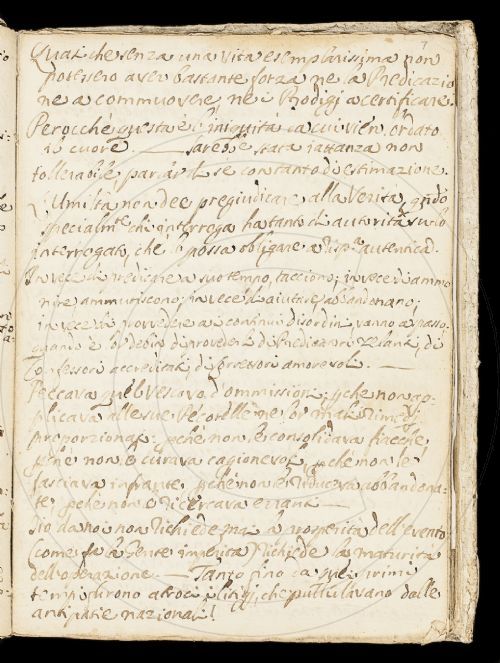 7
Quasi che senza una Vita esemplarissima non
potessero aver bastante forza ne la Predicazio
ne a commuovere, ne i Prodigj a certificare.
Perocchè questa è l'iniquità da cui vien
il cuore. — sarebbe stata jattanza non
tollerabile parlar di se con tanto di estimazione.
L'Umiltà non dee pregiudicare alla Verità,
specialmte chi interroga ha tanto di autorità su lo
interrogato, che lo possa obligare a autentica.
In vece di predicare a suo tempo, tacciono; in vece di ammo
nire ammutiscono; in vece di ajutare, abbandonano;
in vece di provvedere a i continui disordini, vanno a spasso.
quando è l'ordeoio di provedersi di Predicatori zelanti, di
Confessori accreditati, di Professori amorevoli. —
Peccava quel Vescovo d'ommissioni, pchè non ap-
plicava alle sue Pecorelle ne' lor mali
proporzionati: pchè non le consolidava fiacche
pchè non le curava cagionevoli, pchè non le
fasciava infrante, pchè non le riduceva abbandona-
te, pchè non le ricercava erranti —
Iddio da noi non richiede mai la prosperità dell'evento
come fa la Gente imperita, richiede la maturità
dell'operazione. — Tanto fino da quei primi
tempi furono atroci i litigj, che pullulavano dalle
antipatie nazionali!